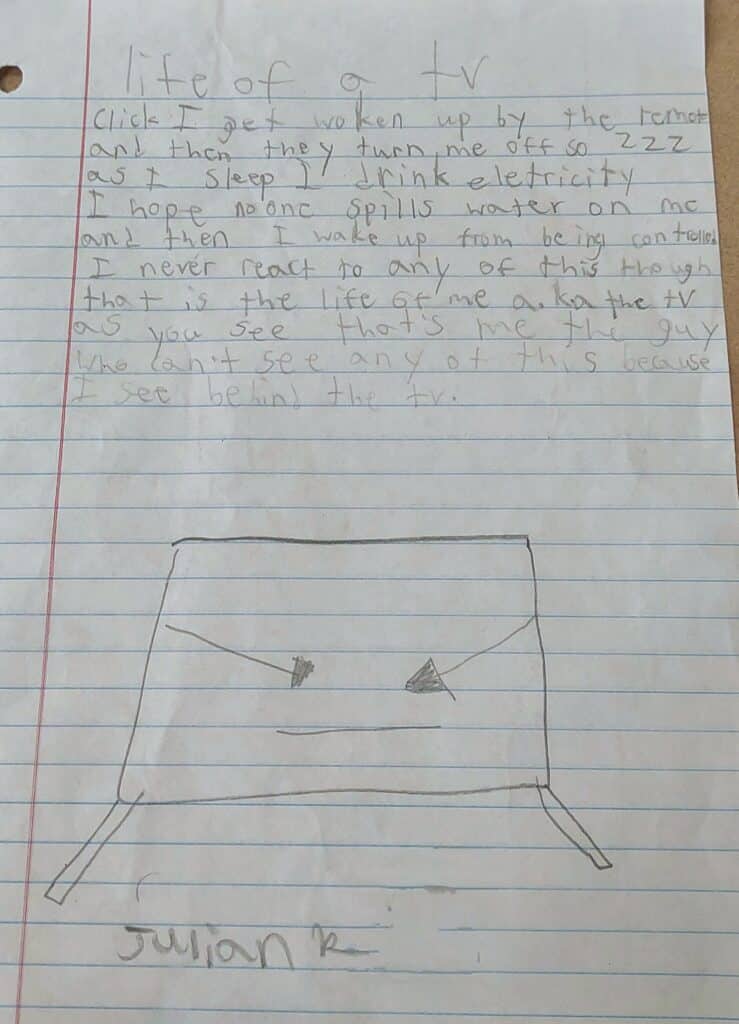 life of a tv
Click I get woken up by the remote
and then they turn me off so ZZZ
as I sleep I drink eletricity
I hope no one spills water on me
and then I wake up from being controlled
I never react to any of this though
that is the life of me a.ka the tv
as you see that's me the guy
who can't see any of this because
I see behind the tv.
Julian k